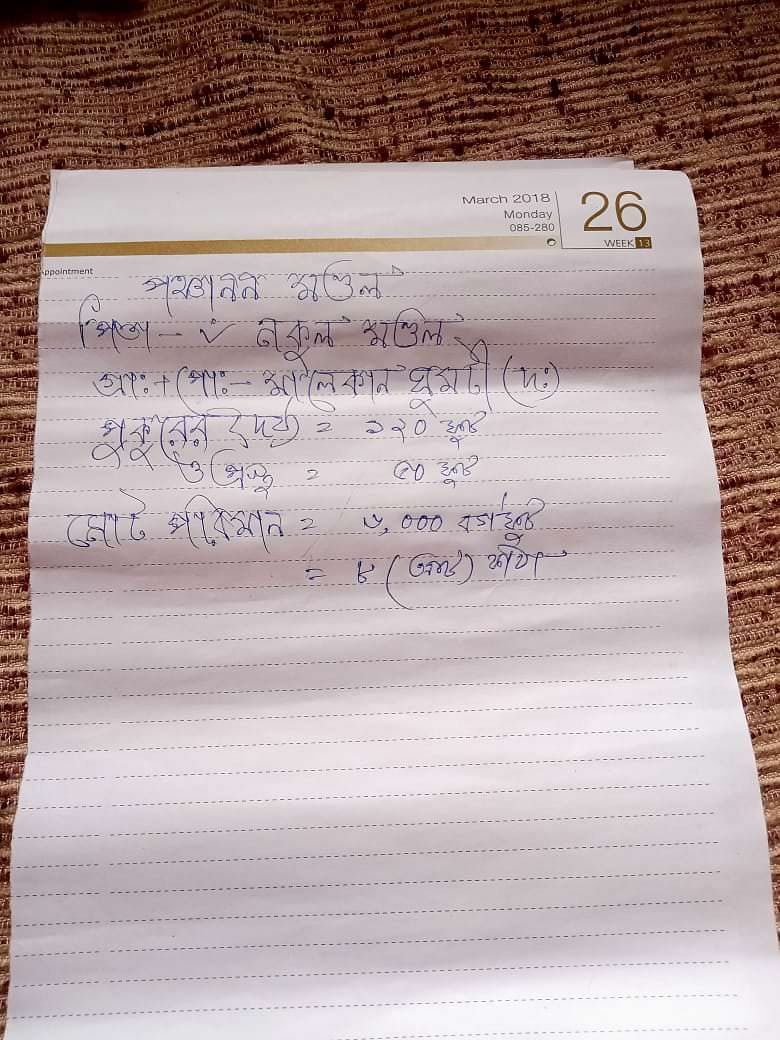 March 2018
Monday
085-280
26
WEEK 13
Appointment
পঞ্চানন মণ্ডল
পিতা - ৺ নকুল মণ্ডল
গ্রাঃ + পোঃ - মালেকান ঘুমটী (দঃ)
পুকুরের দৈর্ঘ্য = ১২০ ফুট
ও প্রস্থ = ৫০ ফুট
মোট পরিমান = ৬,০০০ বর্গফুট
= ৮ (আট)